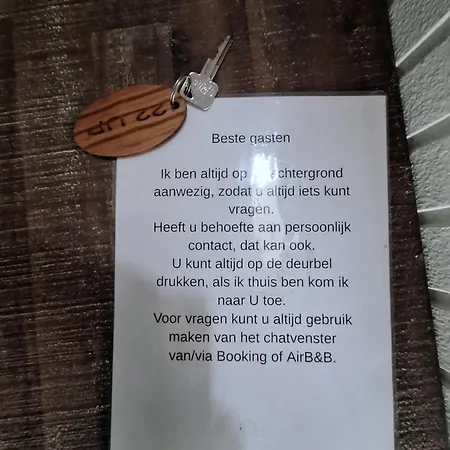 22 UP
Beste gasten
Ik ben altijd op achtergrond
aanwezig, zodat u altijd iets kunt
vragen.
Heeft u behoefte aan persoonlijk
contact, dat kan ook.
U kunt altijd op de deurbel
drukken, als ik thuis ben kom ik
naar U toe.
Voor vragen kunt u altijd gebruik
maken van het chatvenster
van/via Booking of AirB&B.